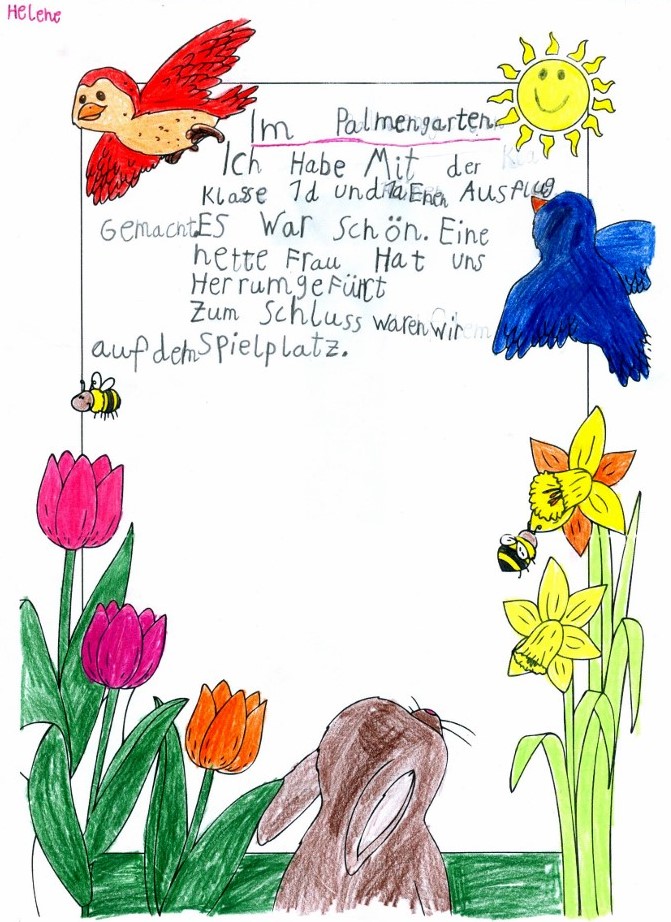 Helene
Im Palmengarten
Ich Habe Mit der
Klasse 1d und 1a Enen Ausflug
Gemacht. ES War Schön. Eine
nette Frau Hat uns
Herrumgefürt
Zum Schluss waren wir
auf dem Spielplatz.